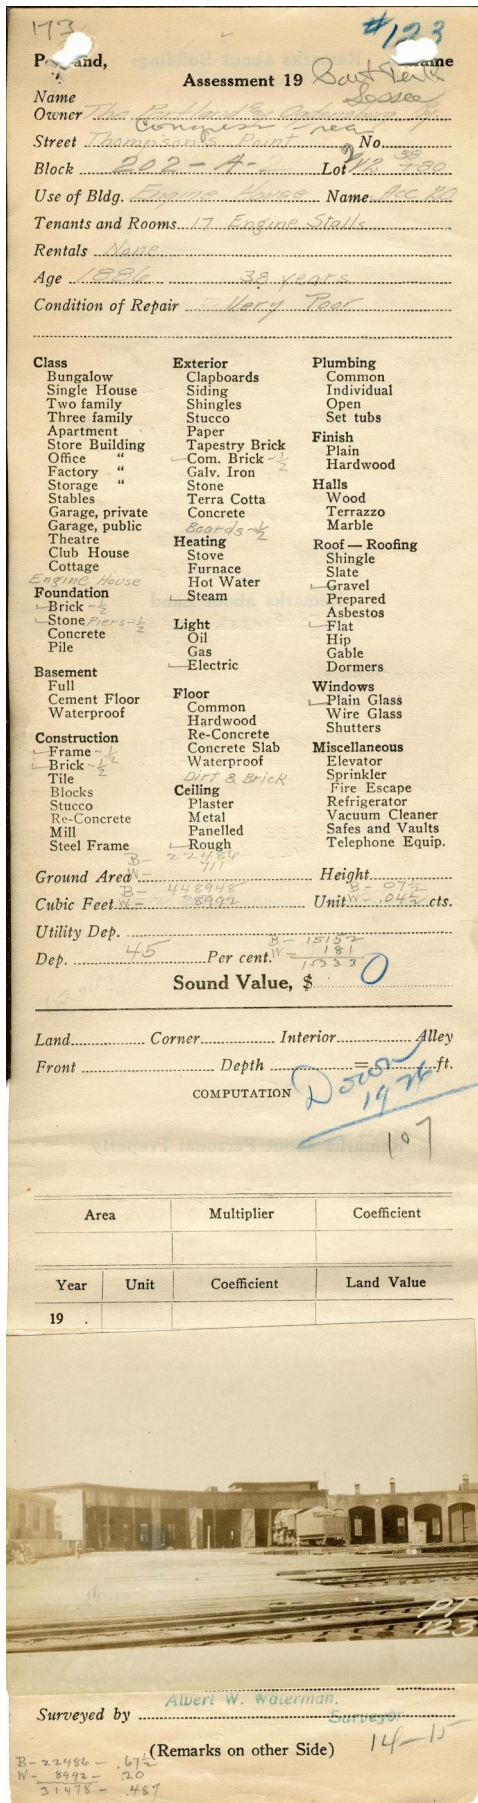 173
#123
Portland, Maine
Assessment 19
Lessee
Name
Owner The Portland & Ogdensburg Ry.
Congress
Street Thompson's Point No.
Block 202-A- Lot
Use of Bldg. Engine House Name
Tenants and Rooms 17 Engine Stalls
Rentals None
Age 1886 38 years
Condition of Repair Very Poor
Class
Bungalow
Single House
Two family
Three family
Apartment
Store Building
Office "
Factory "
Storage "
Stables
Garage, private
Garage, public
Theatre
Club House
Cottage
Engine House
Foundation
Brick - ½
Stone Piers - ½
Concrete
Pile
Basement
Full
Cement Floor
Waterproof
Construction
Frame - ½
Brick - ½
Tile
Blocks
Stucco
Re-Concrete
Mill
Steel Frame
Exterior
Clapboards
Siding
Shingles
Stucco
Paper
Tapestry Brick
Com. Brick - ½
Galv. Iron
Stone
Terra Cotta
Concrete
Boards - ½
Heating
Stove
Furnace
Hot Water
Steam
Light
Oil
Gas
Electric
Floor
Common
Hardwood
Re-Concrete
Concrete Slab
Waterproof
Dirt & Brick
Ceiling
Plaster
Metal
Panelled
Rough
Plumbing
Common
Individual
Open
Set tubs
Finish
Plain
Hardwood
Halls
Wood
Terrazzo
Marble
Roof — Roofing
Shingle
Slate
Gravel
Prepared
Asbestos
Flat
Hip
Gable
Dormers
Windows
Plain Glass
Wire Glass
Shutters
Miscellaneous
Elevator
Sprinkler
Fire Escape
Refrigerator
Vacuum Cleaner
Safes and Vaults
Telephone Equip.
B - 22486
Ground Area W - 711 Height
B - 448948 B - .07½
Cubic Feet W - 8992 Unit W - .04½ cts.
Utility Dep.
B - 15152
Dep. 45 Per cent. W = 181
15333
Sound Value, $ 0
Land Corner Interior Alley
Front Depth = ft.
COMPUTATION
Down
1926
107
Area Multiplier Coefficient
Year Unit Coefficient Land Value
19 .
PT
123
Albert W. Waterman,
Surveyed by Surveyor
(Remarks on other Side) 14-15
B - 22486 - .67½
W - 8992 - .20
31478 - .487